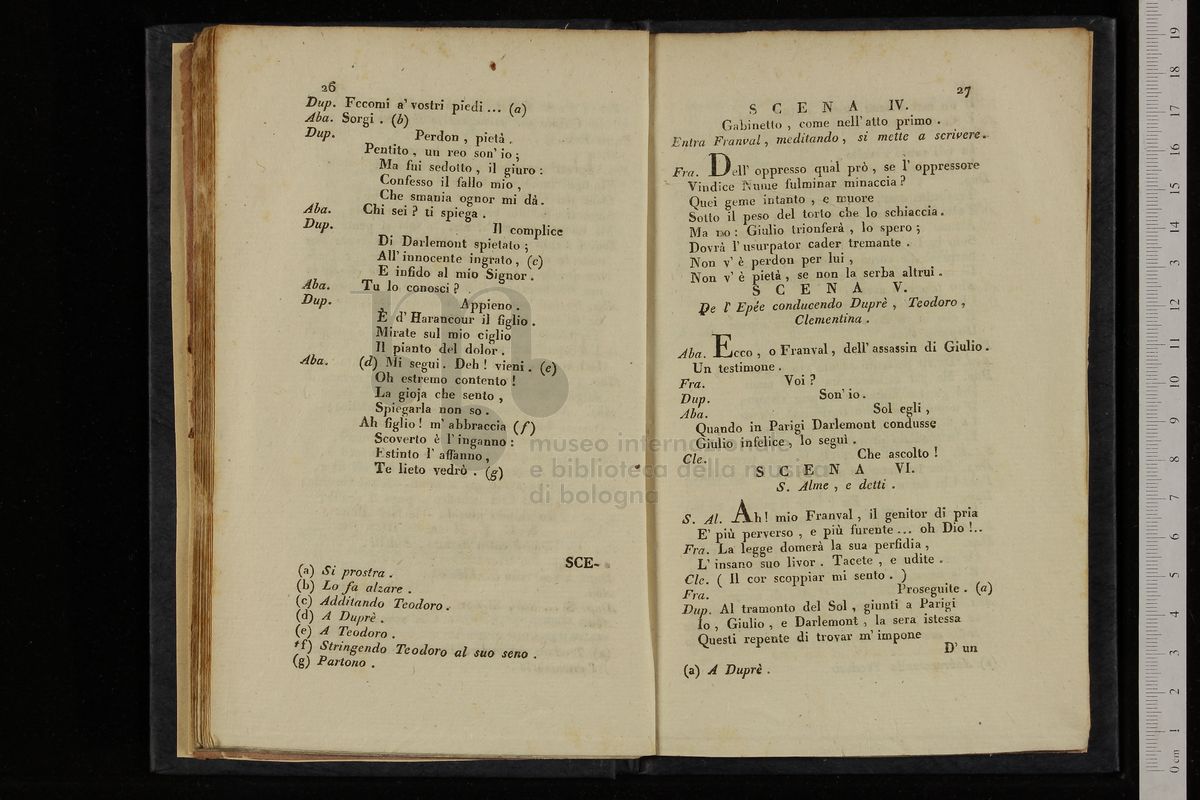 26
Dup. Eccomi a' vostri piedi ... (a)
Aba. Sorgi . (b)
Dup. Perdon , pietà .
Pentito , un reo son' io ;
Ma fui sedotto , il giuro :
Confesso il fallo mio ,
Che smania ognor mi dà .
Aba. Chi sei ? ti spiega .
Dup. Il complice
Di Darlemont spietato ;
All' innocente ingrato , (c)
E infido al mio Signor .
Aba. Tu lo conosci ?
Dup. Appieno .
È d' Harancour il figlio .
Mirate sul mio ciglio
Il pianto del dolor .
Aba. (d) Mi segui . Deh ! vieni . (e)
Oh estremo contento !
La gioja che sento ,
Spiegarla non so .
Ah figlio ! m' abbraccia (f)
Scoverto è l' inganno :
Estinto l' affanno ,
Te lieto vedrò . (g)
SCE-
(a) Si prostra .
(b) Lo fa alzare .
(c) Additando Teodoro .
(d) A Duprè .
(e) A Teodoro .
(f) Stringendo Teodoro al suo seno .
(g) Partono .
27
SCENA IV.
Gabinetto , come nell' atto primo .
Entra Franval , meditando , si mette a scrivere .
Fra. Dell' oppresso qual prò , se l' oppressore
Vindice Nume fulminar minaccia ?
Quei geme intanto , e muore
Sotto il peso del torto che lo schiaccia .
Ma no : Giulio trionferà , lo spero ;
Dovrà l' usurpator cader tremante .
Non v' è perdon per lui ,
Non v' è pietà , se non la serba altrui .
SCENA V.
De l' Epée conducendo Duprè , Teodoro ,
Clementina .
Aba. Ecco , o Franval , dell' assassin di Giulio .
Un testimone .
Fra. Voi ?
Dup. Son' io .
Aba. Sol egli ,
Quando in Parigi Darlemont condusse
Giulio infelice , lo seguì .
Cle. Che ascolto !
SCENA VI.
S. Alme , e detti .
S. Al. Ah ! mio Franval , il genitor di pria
E' più perverso , e più furente ... oh Dio !..
Fra. La legge domerà la sua perfidia ,
L' insano suo livor . Tacete , e udite .
Cle. ( Il cor scoppiar mi sento . )
Fra. Proseguite . (a)
Dup. Al tramonto del Sol , giunti a Parigi
Io , Giulio , e Darlemont , la sera istessa
Questi repente di trovar m' impone
D' un
(a) A Duprè .
museo internazionale
e biblioteca della musica
di bologna
0 cm 1 2 3 4 5 6 7 8 9 10 11 12 13 14 15 16 17 18 19